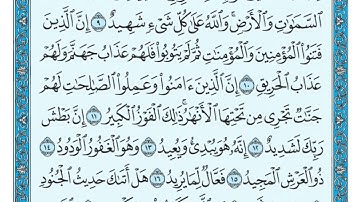 السَّمَٰوَٰتِ وَالْأَرْضِ ۚ وَاللَّهُ عَلَىٰ كُلِّ شَىْءٍ شَهِيدٌ ۝٩ إِنَّ الَّذِينَ
فَتَنُوا۟ الْمُؤْمِنِينَ وَالْمُؤْمِنَٰتِ ثُمَّ لَمْ يَتُوبُوا۟ فَلَهُمْ عَذَابُ جَهَنَّمَ وَلَهُمْ
عَذَابُ الْحَرِيقِ ۝١٠ إِنَّ الَّذِينَ ءَامَنُوا۟ وَعَمِلُوا۟ الصَّٰلِحَٰتِ لَهُمْ
جَنَّٰتٌ تَجْرِى مِن تَحْتِهَا الْأَنْهَٰرُ ۚ ذَٰلِكَ الْفَوْزُ الْكَبِيرُ ۝١١ إِنَّ بَطْشَ
رَبِّكَ لَشَدِيدٌ ۝١٢ إِنَّهُۥ هُوَ يُبْدِئُ وَيُعِيدُ ۝١٣ وَهُوَ الْغَفُورُ الْوَدُودُ ۝١٤
ذُو الْعَرْشِ الْمَجِيدُ ۝١٥ فَعَّالٌ لِّمَا يُرِيدُ ۝١٦ هَلْ أَتَىٰكَ حَدِيثُ الْجُنُودِ